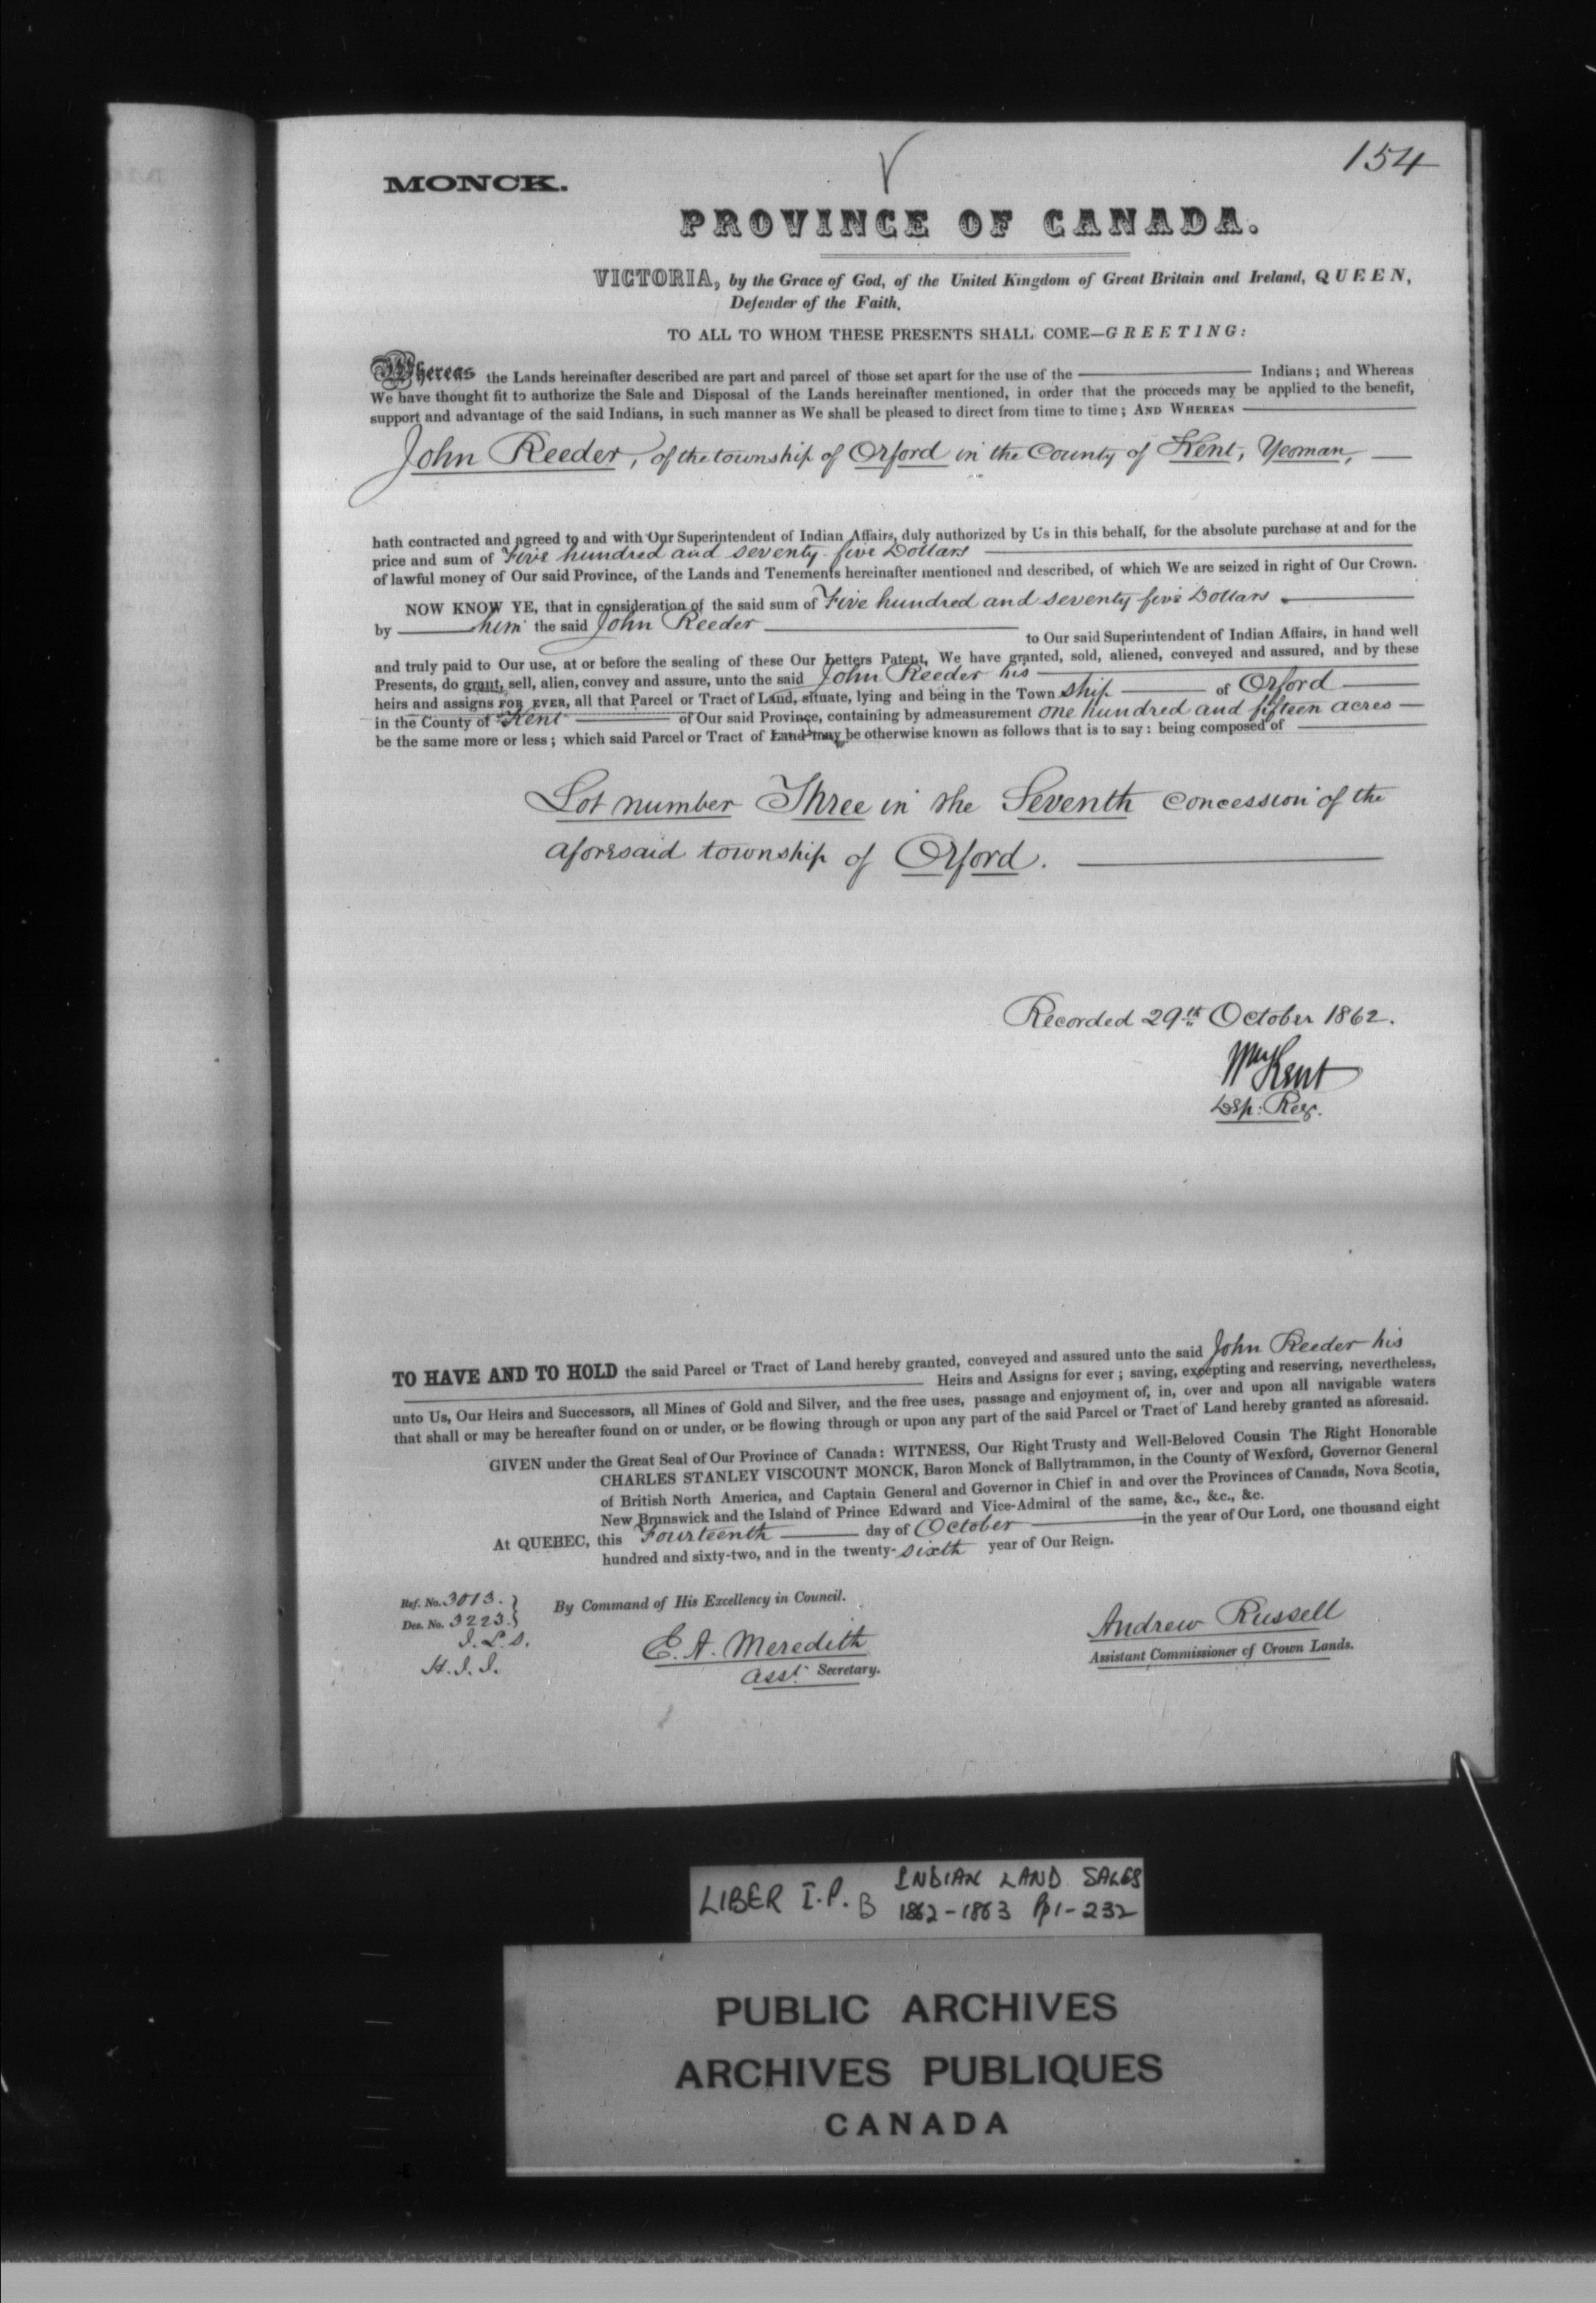 154
MONCK.
PROVINCE OF CANADA.
VICTORIA, by the Grace of God, of the United Kingdom of Great Britain and Ireland, QUEEN,
Defender of the Faith,
TO ALL TO WHOM THESE PRESENTS SHALL COME—GREETING:
Whereas the Lands hereinafter described are part and parcel of those set apart for the use of the ——— Indians; and Whereas
We have thought fit to authorize the Sale and Disposal of the Lands hereinafter mentioned, in order that the proceeds may be applied to the benefit,
support and advantage of the said Indians, in such manner as We shall be pleased to direct from time to time; AND WHEREAS ———
John Reeder, of the township of Orford in the County of Kent, Yeoman, —
hath contracted and agreed to and with Our Superintendent of Indian Affairs, duly authorized by Us in this behalf, for the absolute purchase at and for the
price and sum of Five hundred and seventy-five Dollars ———
of lawful money of Our said Province, of the Lands and Tenements hereinafter mentioned and described, of which We are seized in right of Our Crown.
NOW KNOW YE, that in consideration of the said sum of Five hundred and seventy five Dollars ———
by ——— him the said John Reeder ——— to Our said Superintendent of Indian Affairs, in hand well
and truly paid to Our use, at or before the sealing of these Our Letters Patent, We have granted, sold, aliened, conveyed and assured, and by these
Presents, do grant, sell, alien, convey and assure, unto the said John Reeder his ———
heirs and assigns FOR EVER, all that Parcel or Tract of Land, situate, lying and being in the Town ship ——— of Orford ———
in the County of Kent ——— of Our said Province, containing by admeasurement one hundred and fifteen acres —
be the same more or less; which said Parcel or Tract of Land may be otherwise known as follows that is to say: being composed of ———
Lot number Three in the Seventh concession of the
aforesaid township of Orford. ———
Recorded 29th October 1862.
Wm Kent
Dep: Reg.
TO HAVE AND TO HOLD the said Parcel or Tract of Land hereby granted, conveyed and assured unto the said John Reeder his
——— Heirs and Assigns for ever; saving, excepting and reserving, nevertheless,
unto Us, Our Heirs and Successors, all Mines of Gold and Silver, and the free uses, passage and enjoyment of, in, over and upon all navigable waters
that shall or may be hereafter found on or under, or be flowing through or upon any part of the said Parcel or Tract of Land hereby granted as aforesaid.
GIVEN under the Great Seal of Our Province of Canada: WITNESS, Our Right Trusty and Well-Beloved Cousin The Right Honorable
CHARLES STANLEY VISCOUNT MONCK, Baron Monck of Ballytrammon, in the County of Wexford, Governor General
of British North America, and Captain General and Governor in Chief in and over the Provinces of Canada, Nova Scotia,
New Brunswick and the Island of Prince Edward and Vice-Admiral of the same, &c., &c., &c.
At QUEBEC, this Fourteenth ——— day of October ——— in the year of Our Lord, one thousand eight
hundred and sixty-two, and in the twenty-sixth year of Our Reign.
By Command of His Excellency in Council.
Ref. No. 3013.
Des. No. 3223.
H. J. J.
E. A. Meredith
Asst. Secretary.
Andrew Russell
Assistant Commissioner of Crown Lands.
LIBER I.P. B INDIAN LAND SALES
1862-1863 Pp 1-232
PUBLIC ARCHIVES
ARCHIVES PUBLIQUES
CANADA